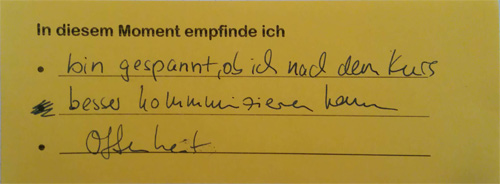 In diesem Moment empfinde ich
• bin gespannt, ob ich nach dem Kurs
besser kommunizieren kann
• Offenheit